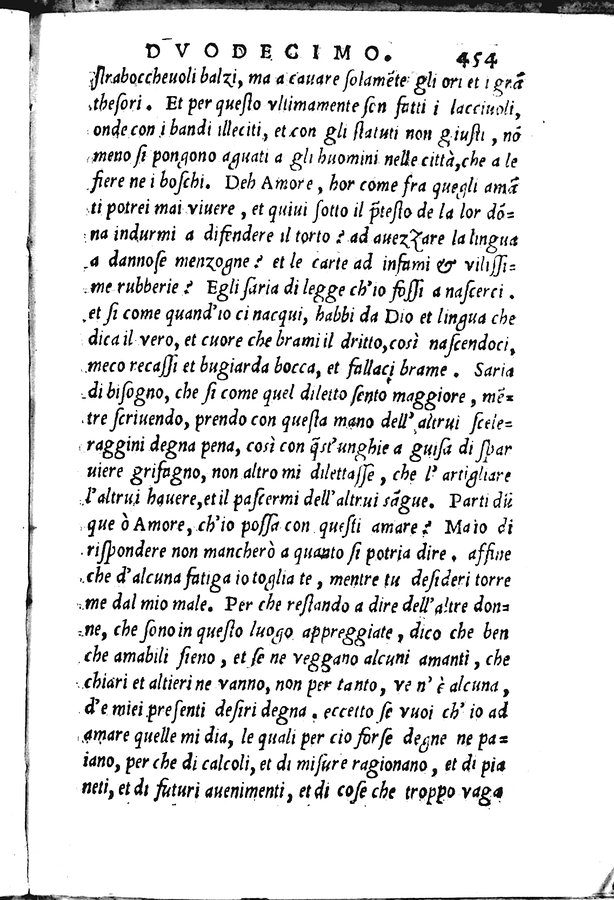 DVODECIMO. 454
ſtraboccheuoli balzi, ma a cauare ſolamẽte gli ori et i grã
theſori. Et per queſto vltimamente ſon fatti i lacciuoli,
onde con i bandi illeciti, et con gli ſtatuti non giuſti, nõ
meno ſi pongono aguati a gli huomini nelle città, che a le
fiere ne i boſchi. Deh Amore, hor come fra quegli amã
ti potrei mai viuere, et quiui ſotto il p̃teſto de la lor dõ=
na indurmi a difendere il torto? ad auezzare la lingua
a dannoſe menzogne? et le carte ad infami & viliſſi=
me rubberie? Egli ſaria di legge ch'io foſſi a naſcerci.
et ſi come quand'io ci nacqui, habbi da Dio et lingua che
dica il vero, et cuore che brami il dritto, così naſcendoci,
meco recaſſi et bugiarda bocca, et fallaci brame. Saria
di biſogno, che ſi come quel diletto ſento maggiore, mẽ=
tre ſcriuendo, prendo con queſta mano dell'altrui ſcele=
raggini degna pena, così con q̃ſt'unghie a guiſa di ſpar
uiere grifagno, non altro mi dilettaſſe, che l'artigliare
l'altrui hauere, et il paſcermi dell'altrui sãgue. Parti dũ
que ò Amore, ch'io poſſa con queſti amare? Ma io di
riſpondere non mancherò a quanto ſi potria dire. affine
che d'alcuna fatiga io toglia te, mentre tu deſideri torre
me dal mio male. Per che reſtando a dire dell'altre don=
ne, che ſono in queſto luogo appreggiate, dico che ben
che amabili ſieno, et ſe ne veggano alcuni amanti, che
chiari et altieri ne vanno, non per tanto, ve n'è alcuna,
d'e miei preſenti deſiri degna. eccetto ſe vuoi ch'io ad
amare quelle mi dia, le quali per cio forſe degne ne pa=
iano, per che di calcoli, et di miſure ragionano, et di pia
neti, et di futuri auenimenti, et di coſe che troppo vaga